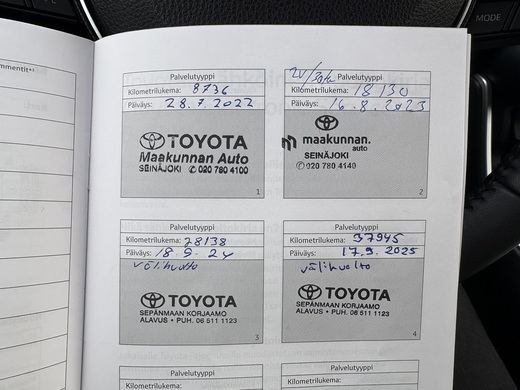 mmentit*¹
MODE
Palvelutyyppi
Kilometrilukema: 8736
Päiväys: 28.7.2022
TOYOTA
Maakunnan Auto
SEINÄJOKI ✆ 020 780 4100
1
Palvelutyyppi
Kilometrilukema: 18130
Päiväys: 16.8.2023
maakunnan.
auto
SEINÄJOKI
✆ 020 780 4140
2
Palvelutyyppi
Kilometrilukema: 28138
Päiväys: 18.9.24
välihuolto
TOYOTA
SEPÄNMAAN KORJAAMO
ALAVUS • PUH. 06 511 1123
3
Palvelutyyppi
Kilometrilukema: 37945
Päiväys: 17.9.2025
välihuolto
TOYOTA
SEPÄNMAAN KORJAAMO
ALAVUS • PUH. 06 511 1123
4
Palvelutyyppi
Kilometrilukema:
Palvelutyyppi
Kilometrilukema: